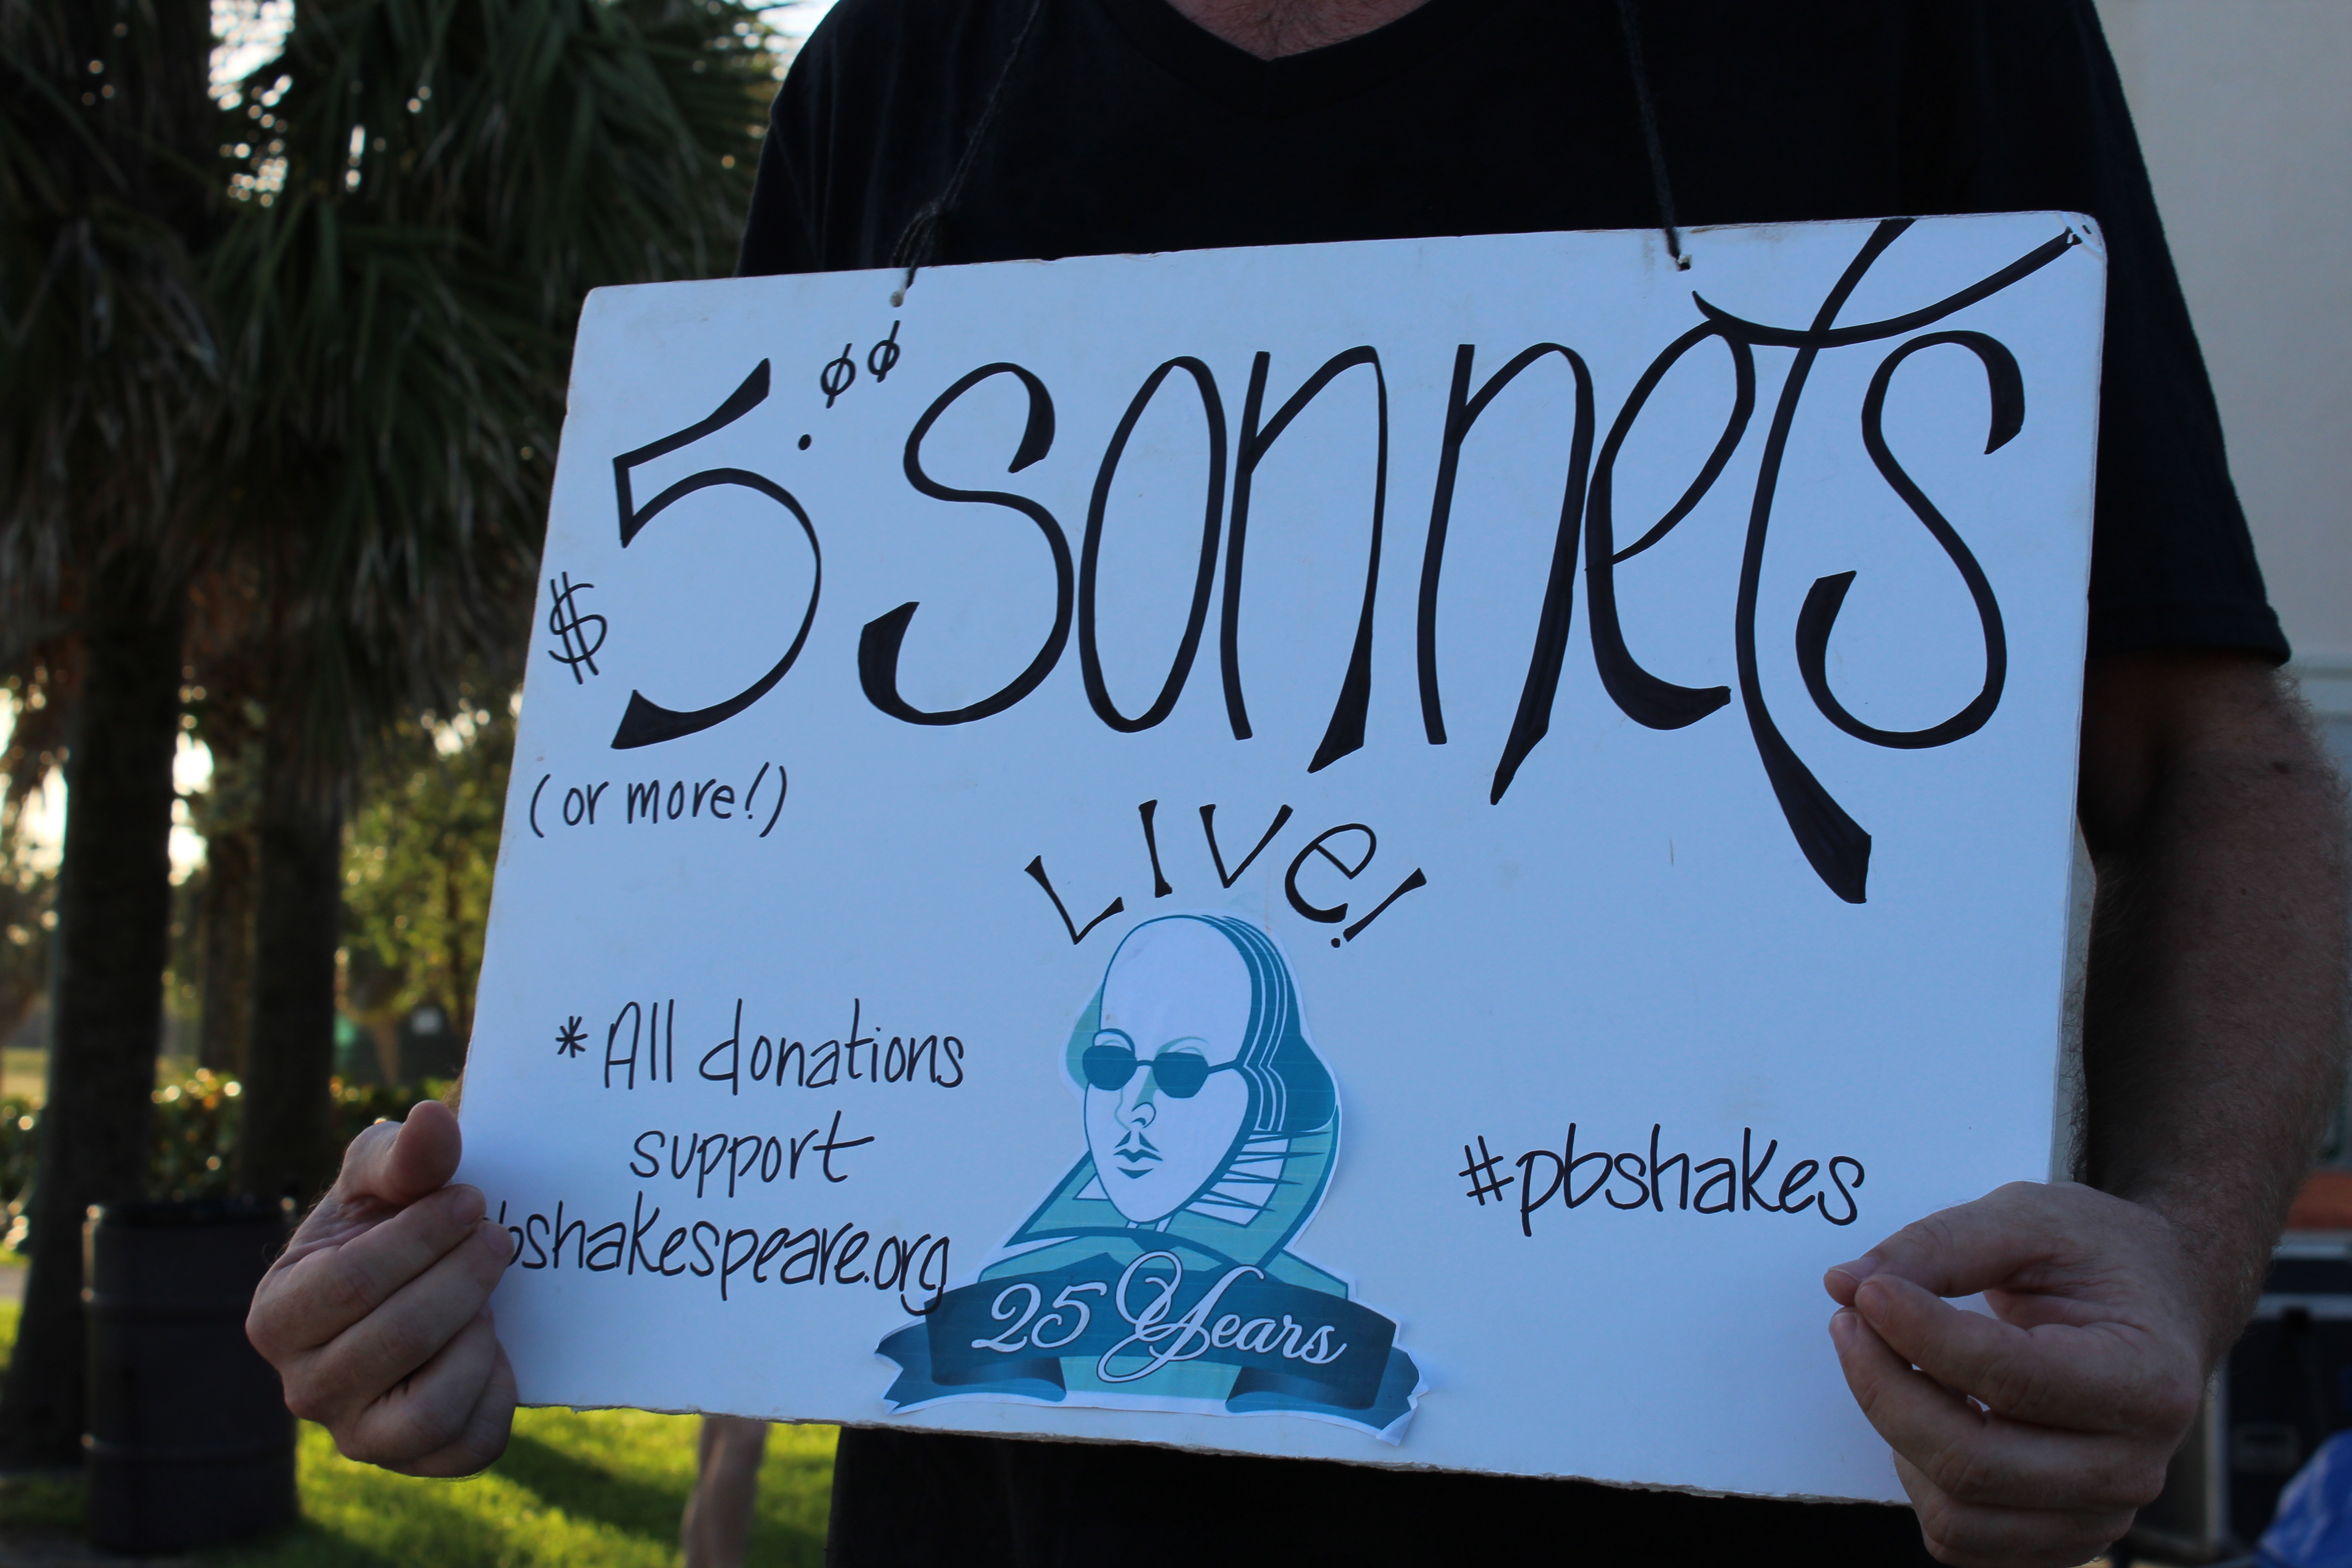 $5.00 sonnets
(or more!)
LIVe!
*All donations
support
bshakespeare.org
#pbshakes
25 Years